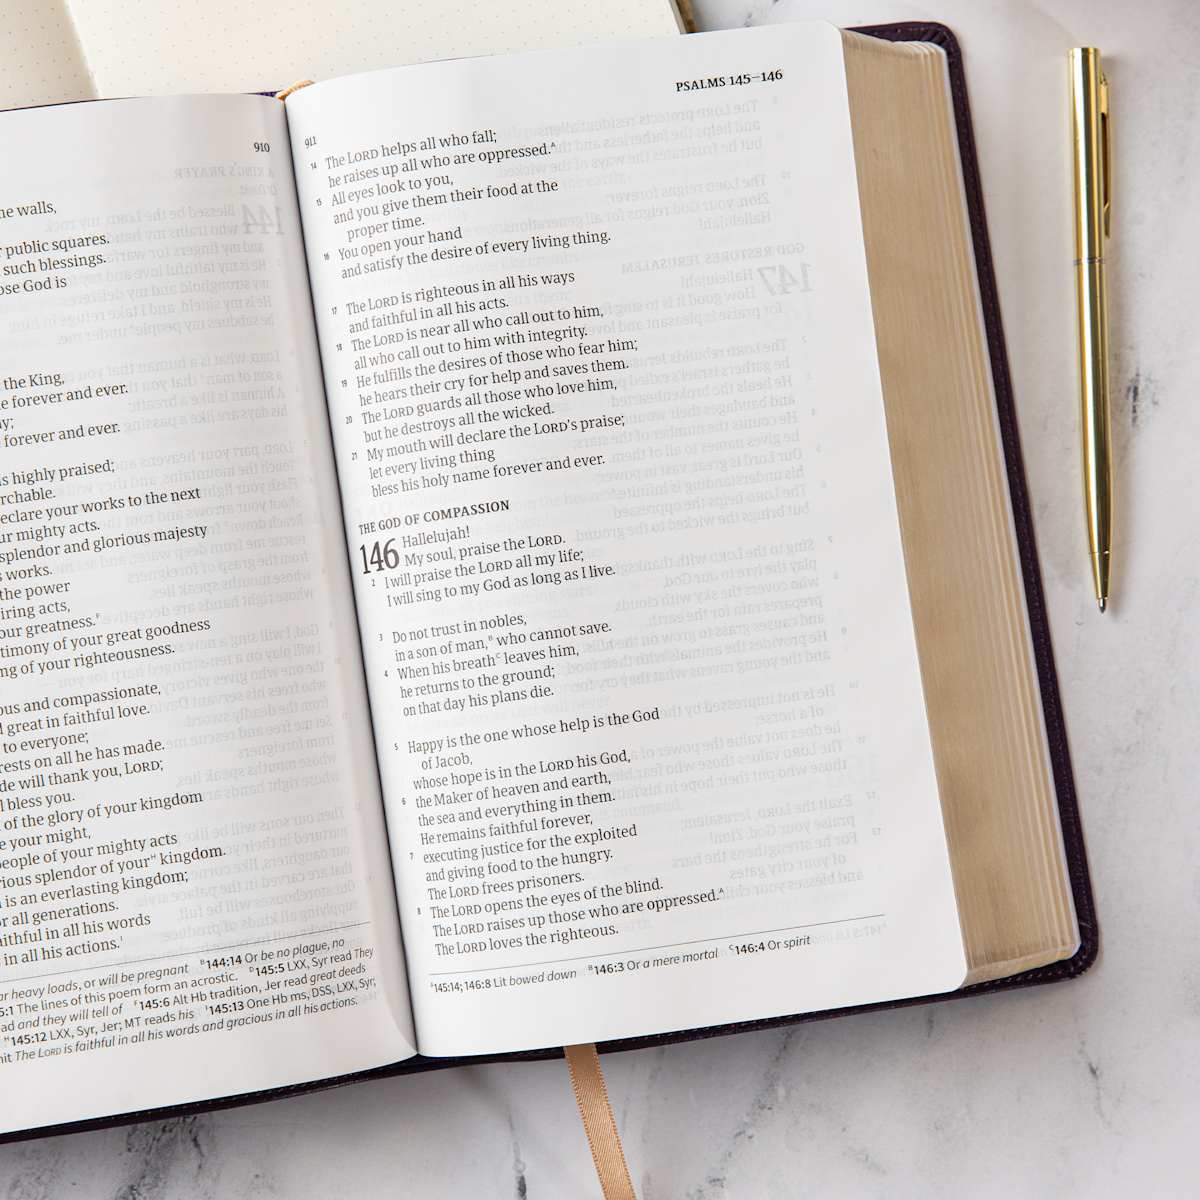 910
he walls,
r public squares.
such blessings.
ose God is
the King,
e forever and ever.
ay;
forever and ever.
is highly praised;
rchable.
eclare your works to the next
ur mighty acts.
splendor and glorious majesty
s works.
the power
iring acts,
our greatness.F
timony of your great goodness
ng of your righteousness.
ous and compassionate,
d great in faithful love.
to everyone;
rests on all he has made.
de will thank you, LORD;
l bless you.
of the glory of your kingdom
e your might,
people of your mighty acts
rious splendor of yourH kingdom.
is an everlasting kingdom;
or all generations.
aithful in all his words
in all his actions.I
ar heavy loads, or will be pregnant B144:14 Or be no plague, no
5:1 The lines of this poem form an acrostic. D145:5 LXX, Syr read They
ad and they will tell of F145:6 Alt Hb tradition, Jer read great deeds
H145:12 LXX, Syr, Jer; MT reads his I145:13 One Hb ms, DSS, LXX, Syr,
nit The LORD is faithful in all his words and gracious in all his actions.
PSALMS 145–146
911
14 The LORD helps all who fall;
he raises up all who are oppressed.A
15 All eyes look to you,
and you give them their food at the
proper time.
16 You open your hand
and satisfy the desire of every living thing.
17 The LORD is righteous in all his ways
and faithful in all his acts.
18 The LORD is near all who call out to him,
all who call out to him with integrity.
19 He fulfills the desires of those who fear him;
he hears their cry for help and saves them.
20 The LORD guards all those who love him,
but he destroys all the wicked.
21 My mouth will declare the LORD's praise;
let every living thing
bless his holy name forever and ever.
THE GOD OF COMPASSION
146 Hallelujah!
My soul, praise the LORD.
2 I will praise the LORD all my life;
I will sing to my God as long as I live.
3 Do not trust in nobles,
in a son of man,B who cannot save.
4 When his breathC leaves him,
he returns to the ground;
on that day his plans die.
5 Happy is the one whose help is the God
of Jacob,
whose hope is in the LORD his God,
6 the Maker of heaven and earth,
the sea and everything in them.
He remains faithful forever,
7 executing justice for the exploited
and giving food to the hungry.
The LORD frees prisoners.
8 The LORD opens the eyes of the blind.
The LORD raises up those who are oppressed.A
The LORD loves the righteous.
A145:14; 146:8 Lit bowed down B146:3 Or a mere mortal C146:4 Or spirit